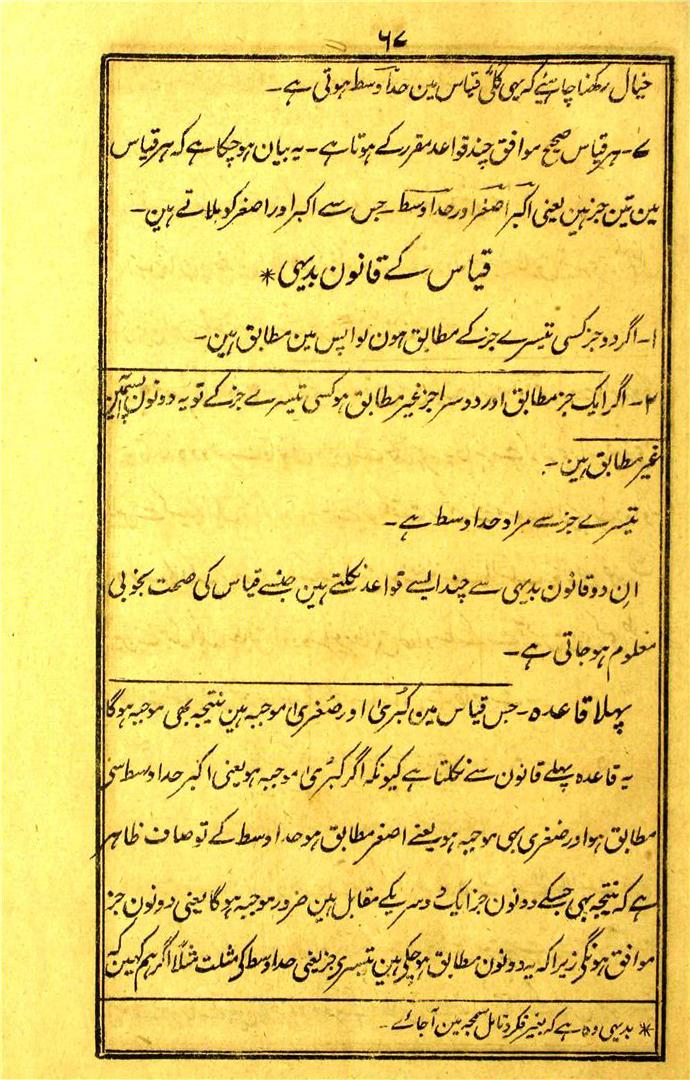 ۶۷
خیال رکھنا چاہیئے کہ یہی کلی قیاس مین حد اوسط ہوتی ہے۔
۷۔ ہر قیاس صحیح موافق چند قواعد مقرر کے ہوتا ہے۔ یہ بیان ہو چکا ہے کہ ہر قیاس
مین تین جز ہین یعنی اکبر اصغر اور حد اوسط جس سے اکبر اور اصغر کو ملاتے ہین۔
قیاس کے قانون بدیہی *
۱۔ اگر دو جز کسی تیسرے جز کے مطابق ہون تو اپس مین مطابق ہین۔
۲۔ اگر ایک جز مطابق اور دوسرا جز غیر مطابق ہو کسی تیسرے جز کے تو یہ دونون آپسمین
غیر مطابق ہین۔
تیسرے جز سے مراد حد اوسط ہے۔
ان دو قانون بدیہی سے چند ایسے قواعد نکلتے ہین جنسے قیاس کی صحت بخوبی
معلوم ہو جاتی ہے۔
پہلا قاعدہ۔ جس قیاس مین کبریٰ اور صغریٰ موجبہ ہین نتیجہ بھی موجبہ ہوگا
یہ قاعدہ پہلے قانون سے نکلتا ہے کیونکہ اگر کبریٰ موجبہ ہو یعنی اکبر حد اوسط سی
مطابق ہو اور صغری بھی موجبہ ہو یعنے اصغر مطابق ہو حد اوسط کے تو صاف ظاہر
ہے کہ نتیجہ بھی جسکے دونون جز ایک دوسریکے مقابل ہین ضرور موجبہ ہوگا یعنی دونون جز
موافق ہونگی زیرا کہ یہ دونون مطابق ہو چکی ہین تیسری جز یعنی حد اوسط کی مثلت مثلًا اگر ہم کہین کہ
* بدیہی وہ ہے کہ بغیر فکر و تامل سمجھ مین آ جائے۔